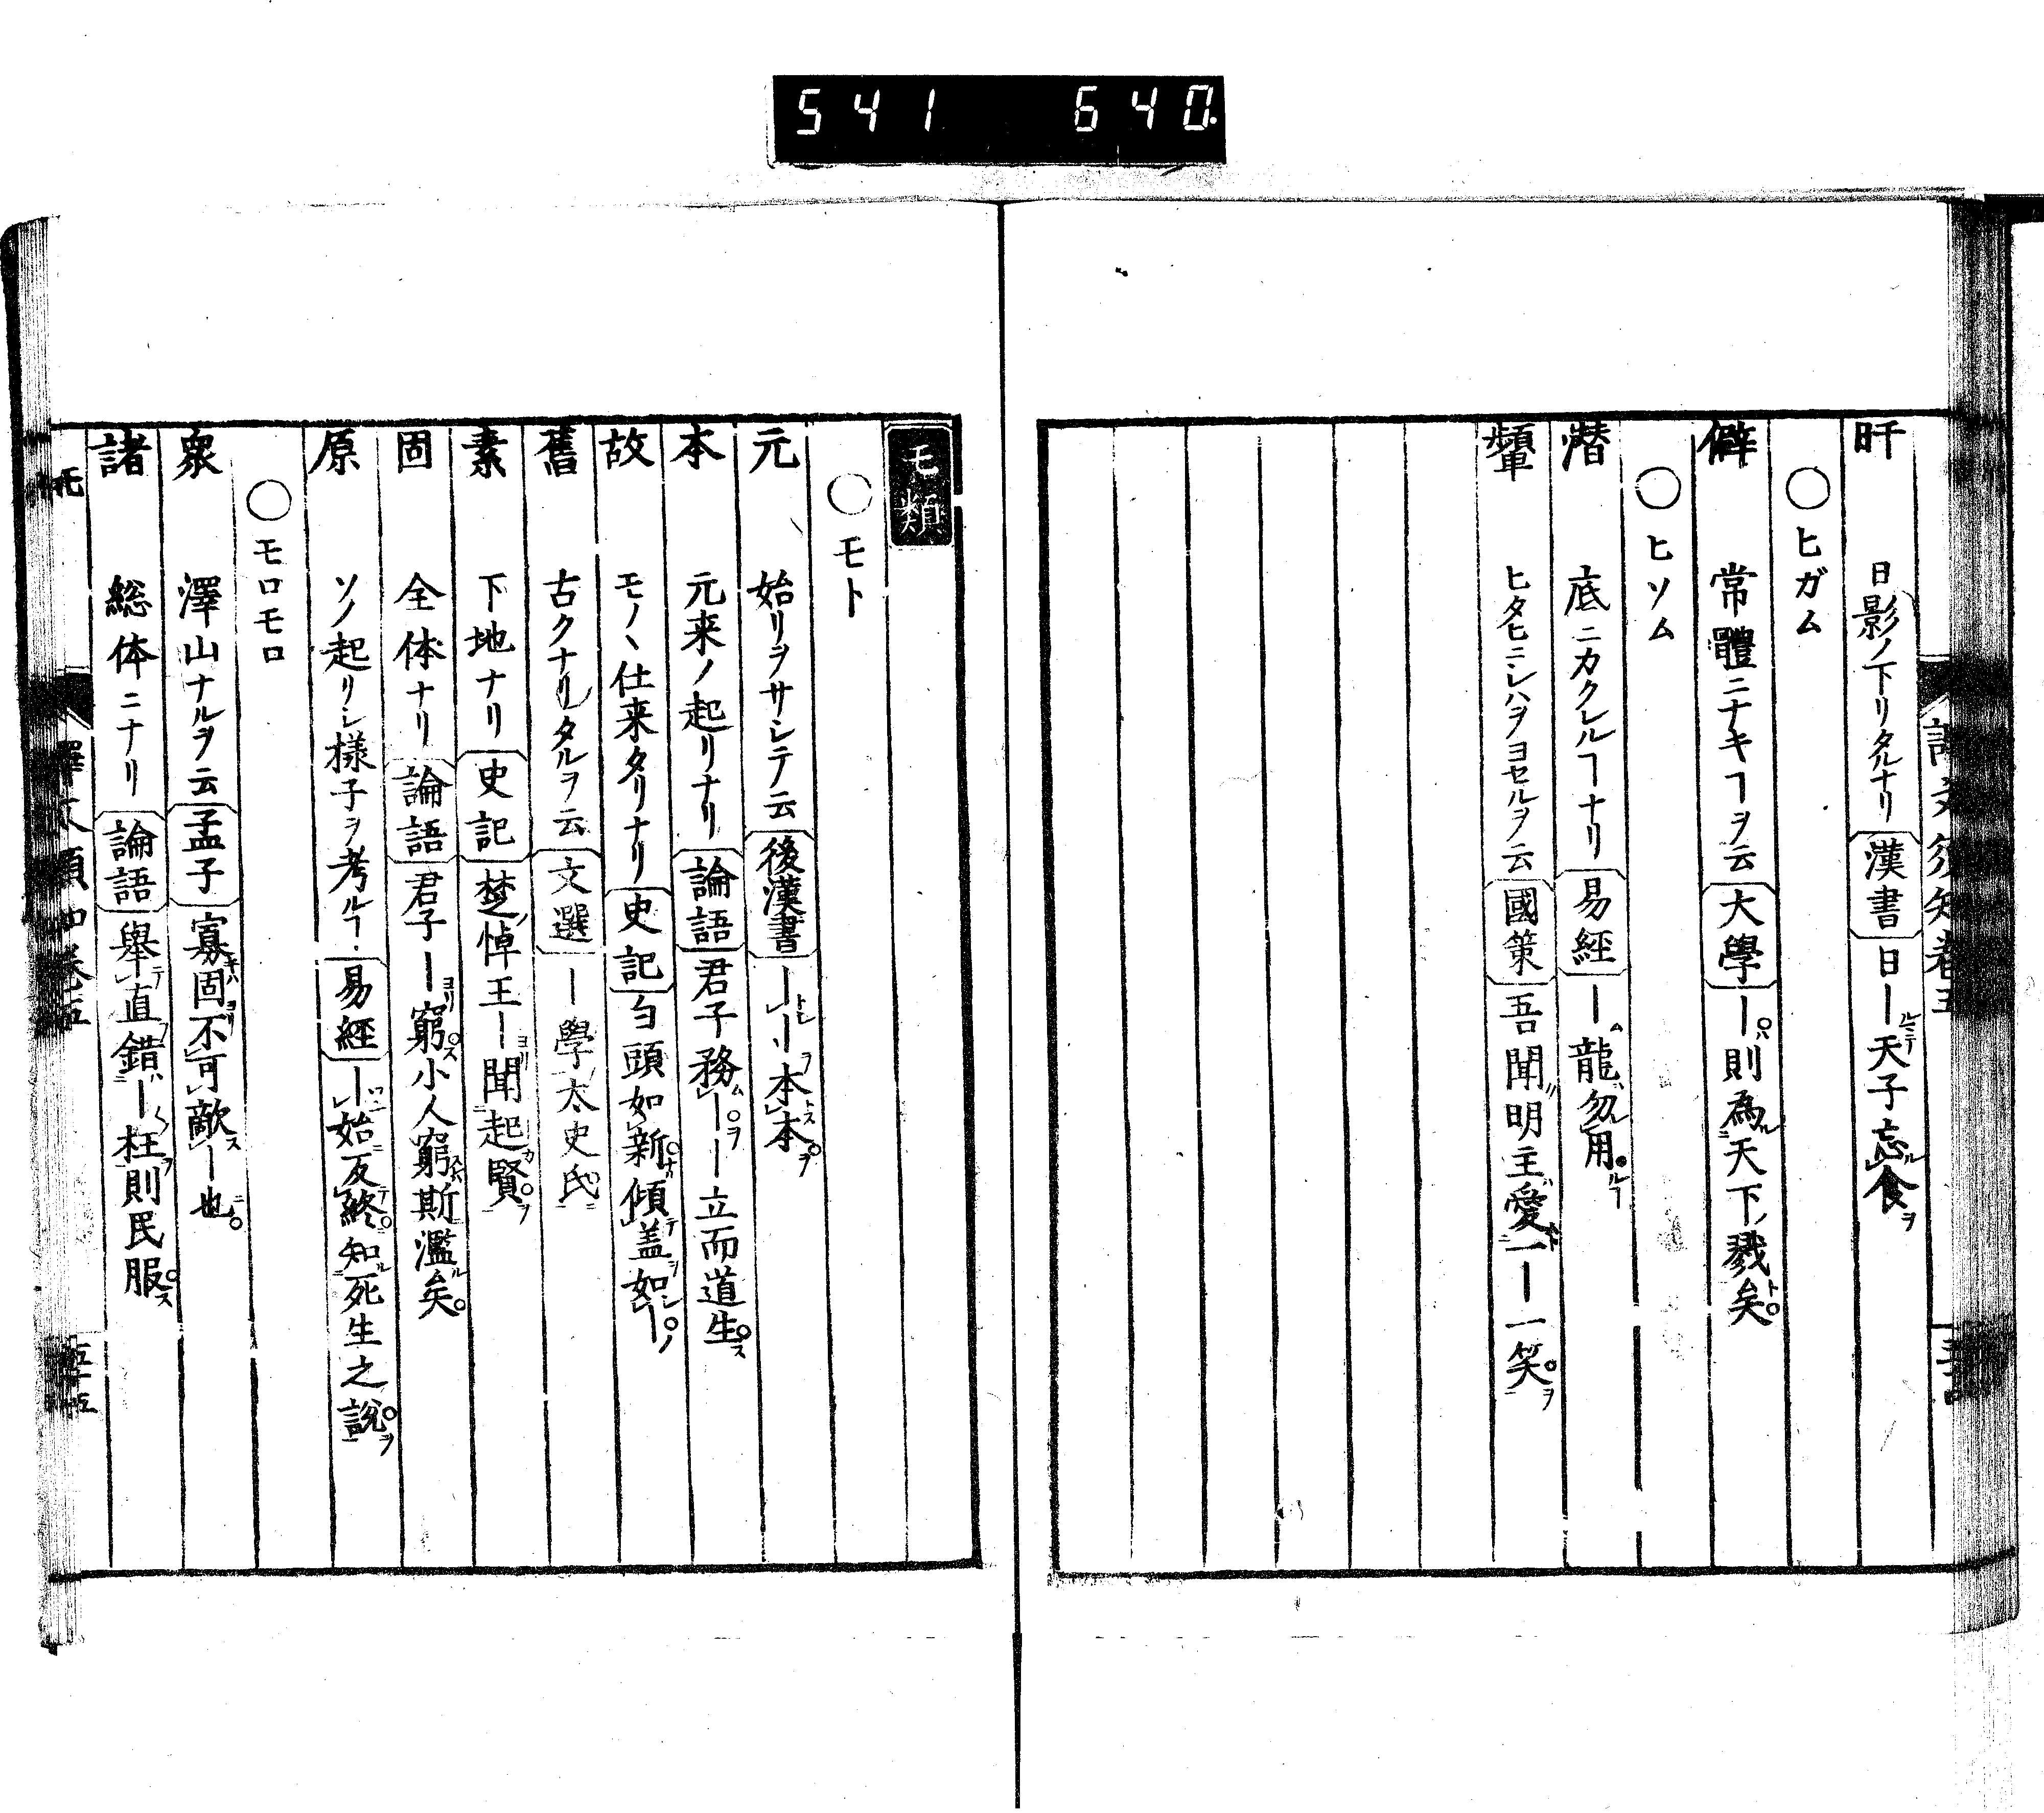 541 640
旰 日影ノ下リタルナリ 漢書 日ー天子忘食
〇ヒガム
僻 常體ニナキヿヲ云 大學 ー則為天下戮矣
〇ヒソム
潜 底ニカクレルヿナリ 易經 ー龍勿用
顰 ヒタヒニシハヲヨセルヲ云 國策 吾聞明主愛一ー一笑
モ類
〇モト
元 始リヲサシテ云 後漢書 ーー本本
本 元来ノ起リナリ 論語 君子務ーー立而道生
故 モノヽ仕来タリナリ 史記 白頭如新傾盖如ー
舊 古クナリタルヲ云 文選 ー學太史氏
素 下地ナリ 史記 楚悼王ー聞起賢
固 全体ナリ 論語 君子ー窮小人窮斯濫矣
原 ソノ起リシ様子ヲ考ルヿ 易經 ー始反終知死生之説
〇モロモロ
衆 澤山ナルヲ云 孟子 寡固不可敵ー也
諸 総体ニナリ 論語 舉直錯ー枉則民服